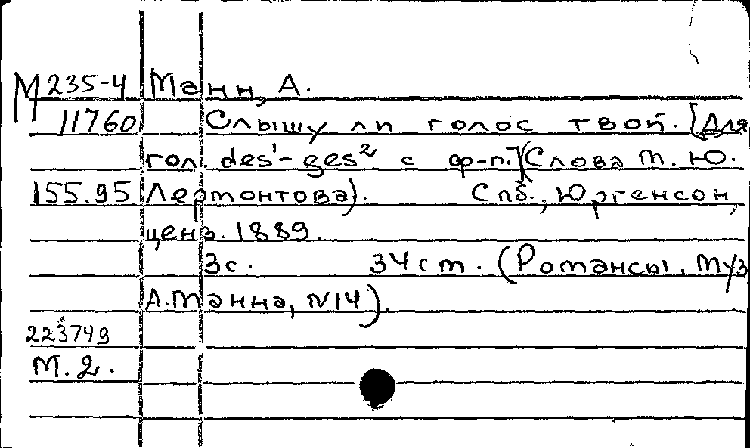 М 235-4 Манн, А.
11760 Слышу ли голос твой. [Для
гол. des¹-ges² с ф-п.] (Слова М. Ю.
155.95 Лермонтова). Спб., Юргенсон,
ценз. 1889.
3с. 34 см. (Романсы. Муз
А. Манна, №14).
223749
М. 2.